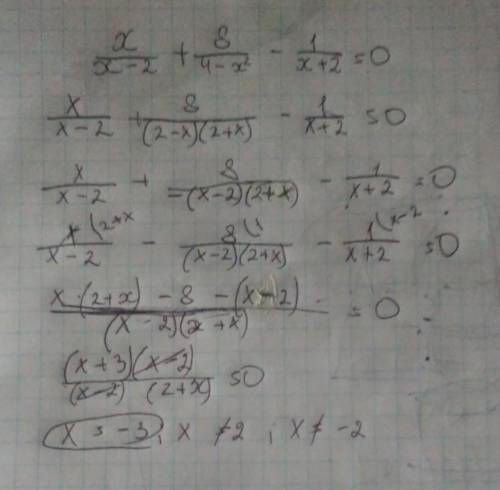 x/(x-2) + 8/(4-x²) - 1/(x+2) = 0
x/(x-2) + 8/((2-x)(2+x)) - 1/(x+2) = 0
x/(x-2) + 8/(-(x-2)(2+x)) - 1/(x+2) = 0
x\2+x/(x-2) - 8\1/((x-2)(2+x)) - 1\x-2/(x+2) = 0
(x·(2+x) - 8 - (x-2))/((x-2)(2+x)) = 0
((x+3)(x-2))/((x-2)(2+x)) = 0
x = -3, x ≠ 2 ; x ≠ -2